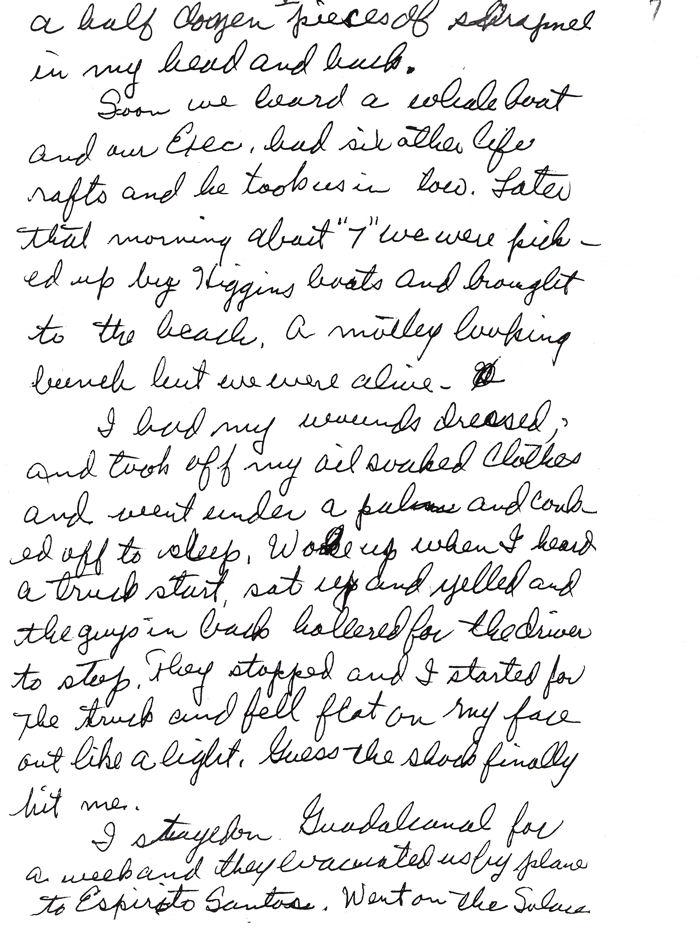 7
a half dozen pieces of shrapnel
in my head and back.
Soon we heard a whale boat
and our Exec. had six other life
rafts and he took us in tow. Later
that morning about "7" we were pick-
ed up by Higgins boats and brought
to the beach. A motley looking
bunch but we were alive-
I had my wounds dressed,
and took off my oil soaked clothes
and went under a palm and conk-
ed off to sleep. Woke up when I heard
a truck start, sat up and yelled and
the guys in back hollered for the driver
to stop. They stopped and I started for
the truck and fell flat on my face
out like a light. Guess the shock finally
hit me.
I stayed on Guadalcanal for
a week and they evacuated us by plane
to Espirito Santos. Went on the Solace